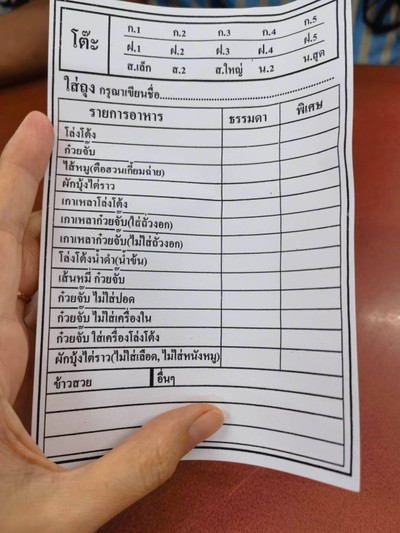 โต๊ะ
ก.1 ก.2 ก.3 ก.4 ก.5
ฝ.1 ฝ.2 ฝ.3 ฝ.4 ฝ.5
ส.เล็ก ส.2 ส.ใหญ่ น.2 น.สุด
ใส่ถุง กรุณาเขียนชื่อ
รายการอาหาร ธรรมดา พิเศษ
โล่งโต้ง
ก๋วยจั๊บ
ไส้หมู(ตือฮวนเกี้ยมฉ่าย)
ผักบุ้งไต่ราว
เกาเหลาโล่งโต้ง
เกาเหลาก๋วยจั๊บ(ใส่ถั่วงอก)
เกาเหลาก๋วยจั๊บ(ไม่ใส่ถั่วงอก)
โล่งโต้งน้ำดำ(น้ำข้น)
เส้นหมี่ ก๋วยจั๊บ
ก๋วยจั๊บ ไม่ใส่ปอด
ก๋วยจั๊บ ไม่ใส่เครื่องใน
ก๋วยจั๊บ ใส่เครื่องโล่งโต้ง
ผักบุ้งไต่ราว(ไม่ใส่เลือด, ไม่ใส่หนังหมู)
ข้าวสวย อื่นๆ